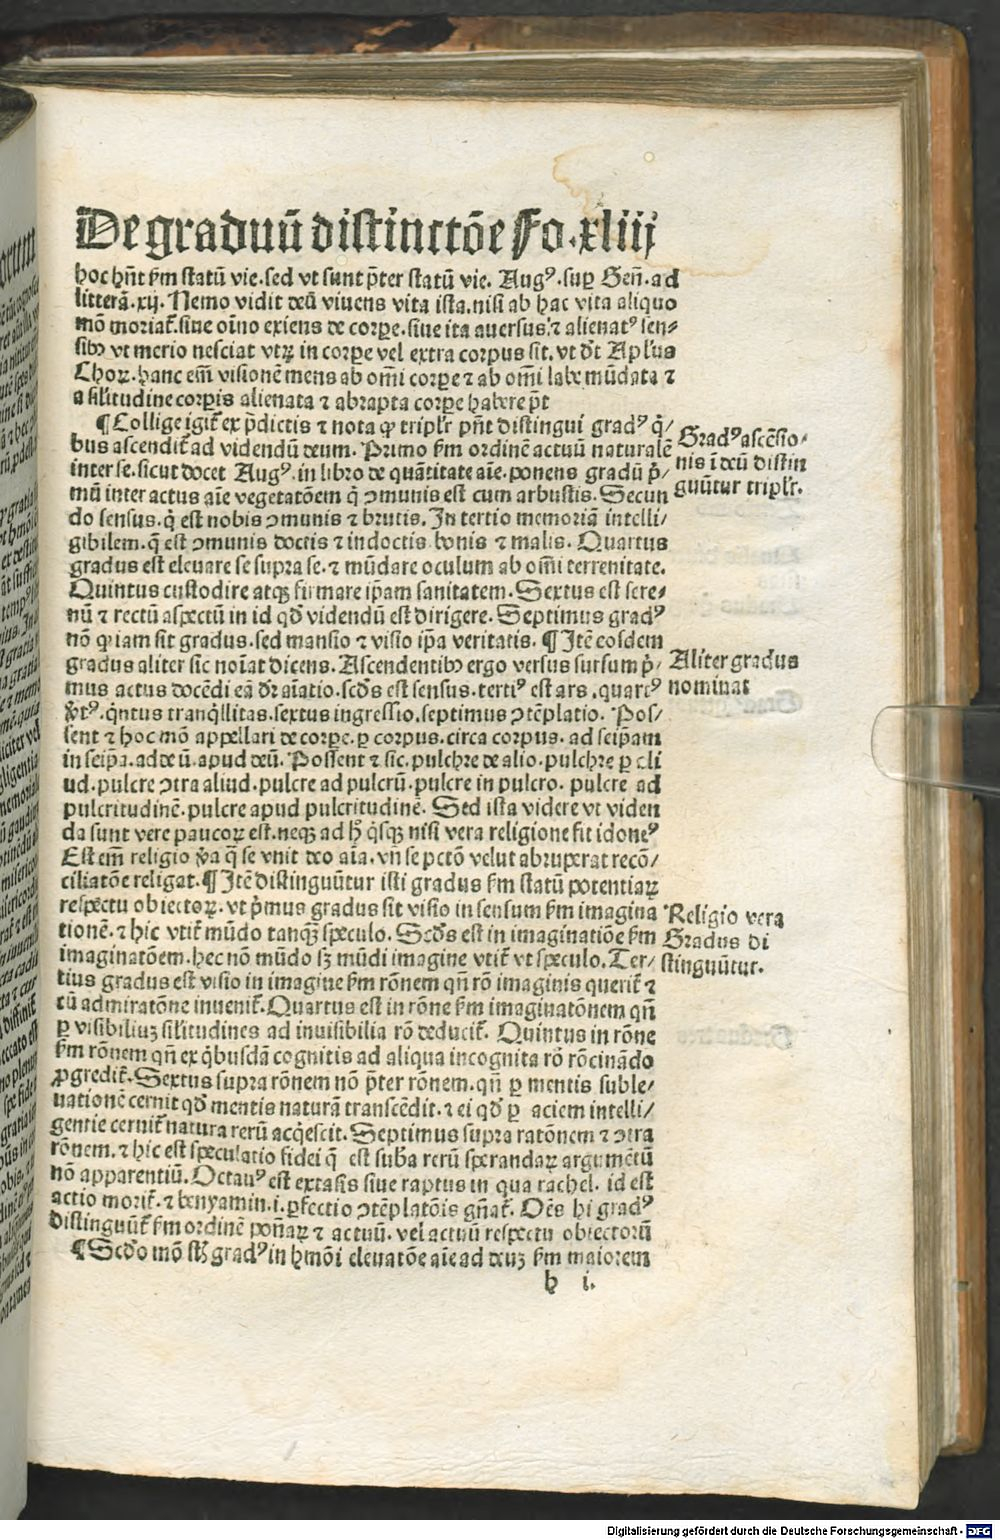 De graduū distinctōe Fo. xliiij
hoc hn̄t ẜm statū vie. sed vt sunt p̄ter statū vie. Augꝰ. suꝑ Gen̄. ad
litterā. xij. Nemo vidit deū viuens vita ista. nisi ab hac vita aliquo
mō moriat᷑. siue oīno exiens de corꝑe. siue ita auersus. ⁊ alienatꝰ sen⸗
sibꝫ vt merio nesciat vtꝝ in corꝑe vel extra corpus sit. vt dt̄ Apl'us
Choꝝ. hanc em̄ visionē mens ab om̄i corꝑe ⁊ ab om̄i labe mūdata ⁊
a silitudine corꝑis alienata ⁊ abrapta corꝑe habere pt̄
¶ Collige igit᷑ ex p̄dictis ⁊ nota ꝙ tripl'r pn̄t distingui gradꝰ q̇/
bus ascendit᷑ ad videndū deum. Primo ẜm ordinē actuū naturalē
inter se. sicut docet Augꝰ. in libro de quātitate aīe. ponens gradū p̄/
mū inter actus aīe vegetatōem q̄ ꝯmunis est cum arbustis. Secun
do sensus. q̇ est nobis ꝯmunis ⁊ brutis. In tertio memoriā intelli/
gibilem. q̄ est ꝯmunis doctis ⁊ indoctis bonis ⁊ malis. Quartus
gradus est eleuare se supra se. ⁊ mūdare oculum ab om̄i terrenitate.
Quintus custodire atqꝫ firmare ip̄am sanitatem. Sextus est sere⸗
nū ⁊ rectū aspectū in id qd̄ videndū est dirigere. Septimus gradꝰ
nō ꝙ iam sit gradus. sed mansio ⁊ visio ip̄a veritatis. ¶ Itē eosdem
gradus aliter sic noīat dicens. Ascendentibꝫ ergo versus sursum p̄/
mus actus docēdi eā dr̄ aīatio. scd̄s est sensus. tertiꝰ est ars. quartꝰ
v̄tꝰ. q̇ntus tranq̇llitas. sextus ingressio. septimus ꝯtēplatio. Pos⸗
sent ⁊ hoc mō appellari de corꝑe. ꝑ corpus. circa corpus. ad seip̄am
in seip̄a. ad deū. apud deū. Possent ⁊ sic. pulchre de alio. pulchre ꝑ ali
ud. pulcre ꝯtra aliud. pulcre ad pulcrū. pulcre in pulcro. pulcre ad
pulcritudinē. pulcre apud pulcritudinē. Sed ista videre vt viden
da sunt vere paucoꝝ est. neqꝫ ad h̄ q̇sqꝫ nisi vera religione fit idoneꝰ
Est em̄ religio v̄a q̄ se vnit deo aīa. vn̄ se pctō velut abruperat recō/
ciliatōe religat. ¶ Itē distinguūtur isti gradus ẜm statū potentiaꝝ
respectu obiectoꝝ. vt p̄mus gradus sit visio in sensum ẜm imagina
tionē. ⁊ hic vtit᷑ mūdo tanqꝫ speculo. Scd̄s est in imaginatiōe ẜm
imaginatōem. hec nō mūdo sꝫ mūdi imagine vtit᷑ vt speculo. Ter/
tius gradus est visio in imagine ẜm rōnem qn̄ rō imaginis querit᷑ ⁊
cū admiratōne inuenit᷑. Quartus est in rōne ẜm imaginatōnem qn̄
ꝑ visibiliuꝫ silitudines ad inuisibilia rō deducit᷑. Quintus in rōne
ẜm rōnem qn̄ ex q̇busdā cognitis ad aliqua incognita rō rōcinādo
ꝓgredit᷑. Sextus supra rōnem nō p̄ter rōnem. qn̄ ꝑ mentis suble⸗
uationē cernit qd̄ mentis naturā transcēdit. ⁊ ei qd̄ ꝑ aciem intelli/
gentie cernit᷑ natura rerū acq̇escit. Septimus supra ratōnem ⁊ ꝯtra
rōnem. ⁊ hic est speculatio fidei q̄ est sub̄a rerū sperandaꝝ argumētū
nō apparentiū. Octauꝰ est extasis siue raptus in qua rachel. id est
actio morit᷑. ⁊ benyamin. i. ꝑfectio ꝯtēplatōis gn̄at᷑. Oēs hi gradꝰ
distinguūt᷑ ẜm ordinē pon̄aꝝ ⁊ actuū. vel actuū respectu obiectorū
¶ Scd̄o mō st̄ gradꝰ in hmōi eleuatōe aīe ad deuꝫ ẜm maiorem
h i.
Gradꝰ ascēsio⸗
nis ī deū distin
guūtur tripl'r.
Aliter gradus
nominat
Religio vera
Gradus di
stinguūtur.
Digitalisierung gefördert durch die Deutsche Forschungsgemeinschaft - DFG